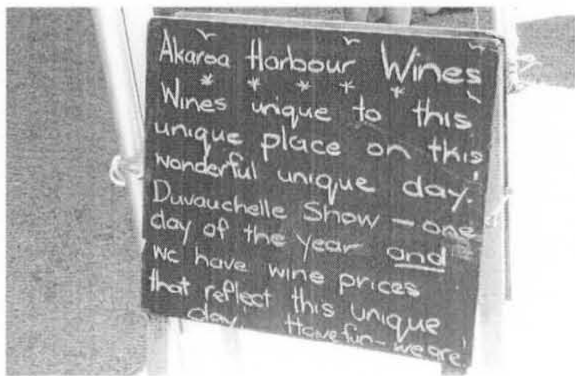 Akaroa Harbour Wines
* * * * *
Wines unique to this
unique place on this
wonderful unique day.
Duvauchelle Show - one
day of the year and
we have wine prices
that reflect this unique
day. Have fun - we are!